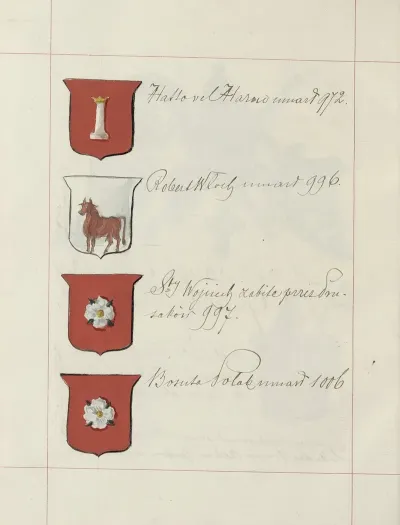 Hatto vel Harno umarł 972.
Robert Włoch umarł 996.
Stj Wojciech zabity przez Pru-
saków 997.
Bossuta Polak umarł 1006